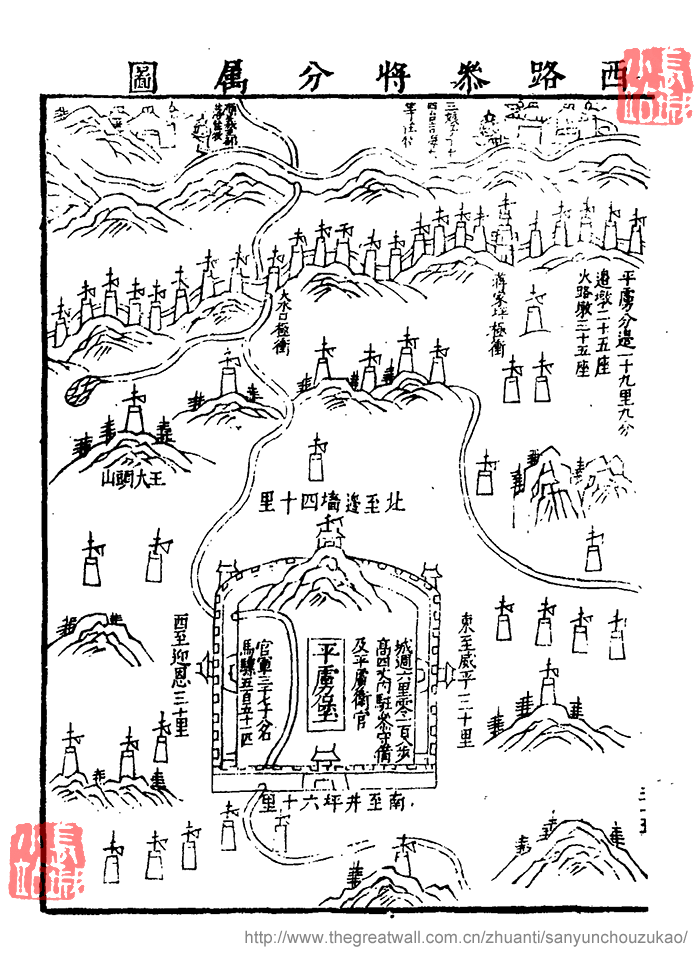 西路叅將分属圖
長城小站
平虜分邉一十九里九分
邉墩二十五座
火路墩三十五座
蒋家坪極衝
大水口極衝
王大頭山
北至邉墻四十里
東至威平二十里
城週六里零二百步
高四丈內駐叅守俻
及平虜衛官
平虜堡
官軍三千七十八名
馬騾五百五十一匹
西至迎恩三十里
南至井坪六十里
長城小站
http://www.thegreatwall.com.cn/zhuanti/sanyunchouzukao/